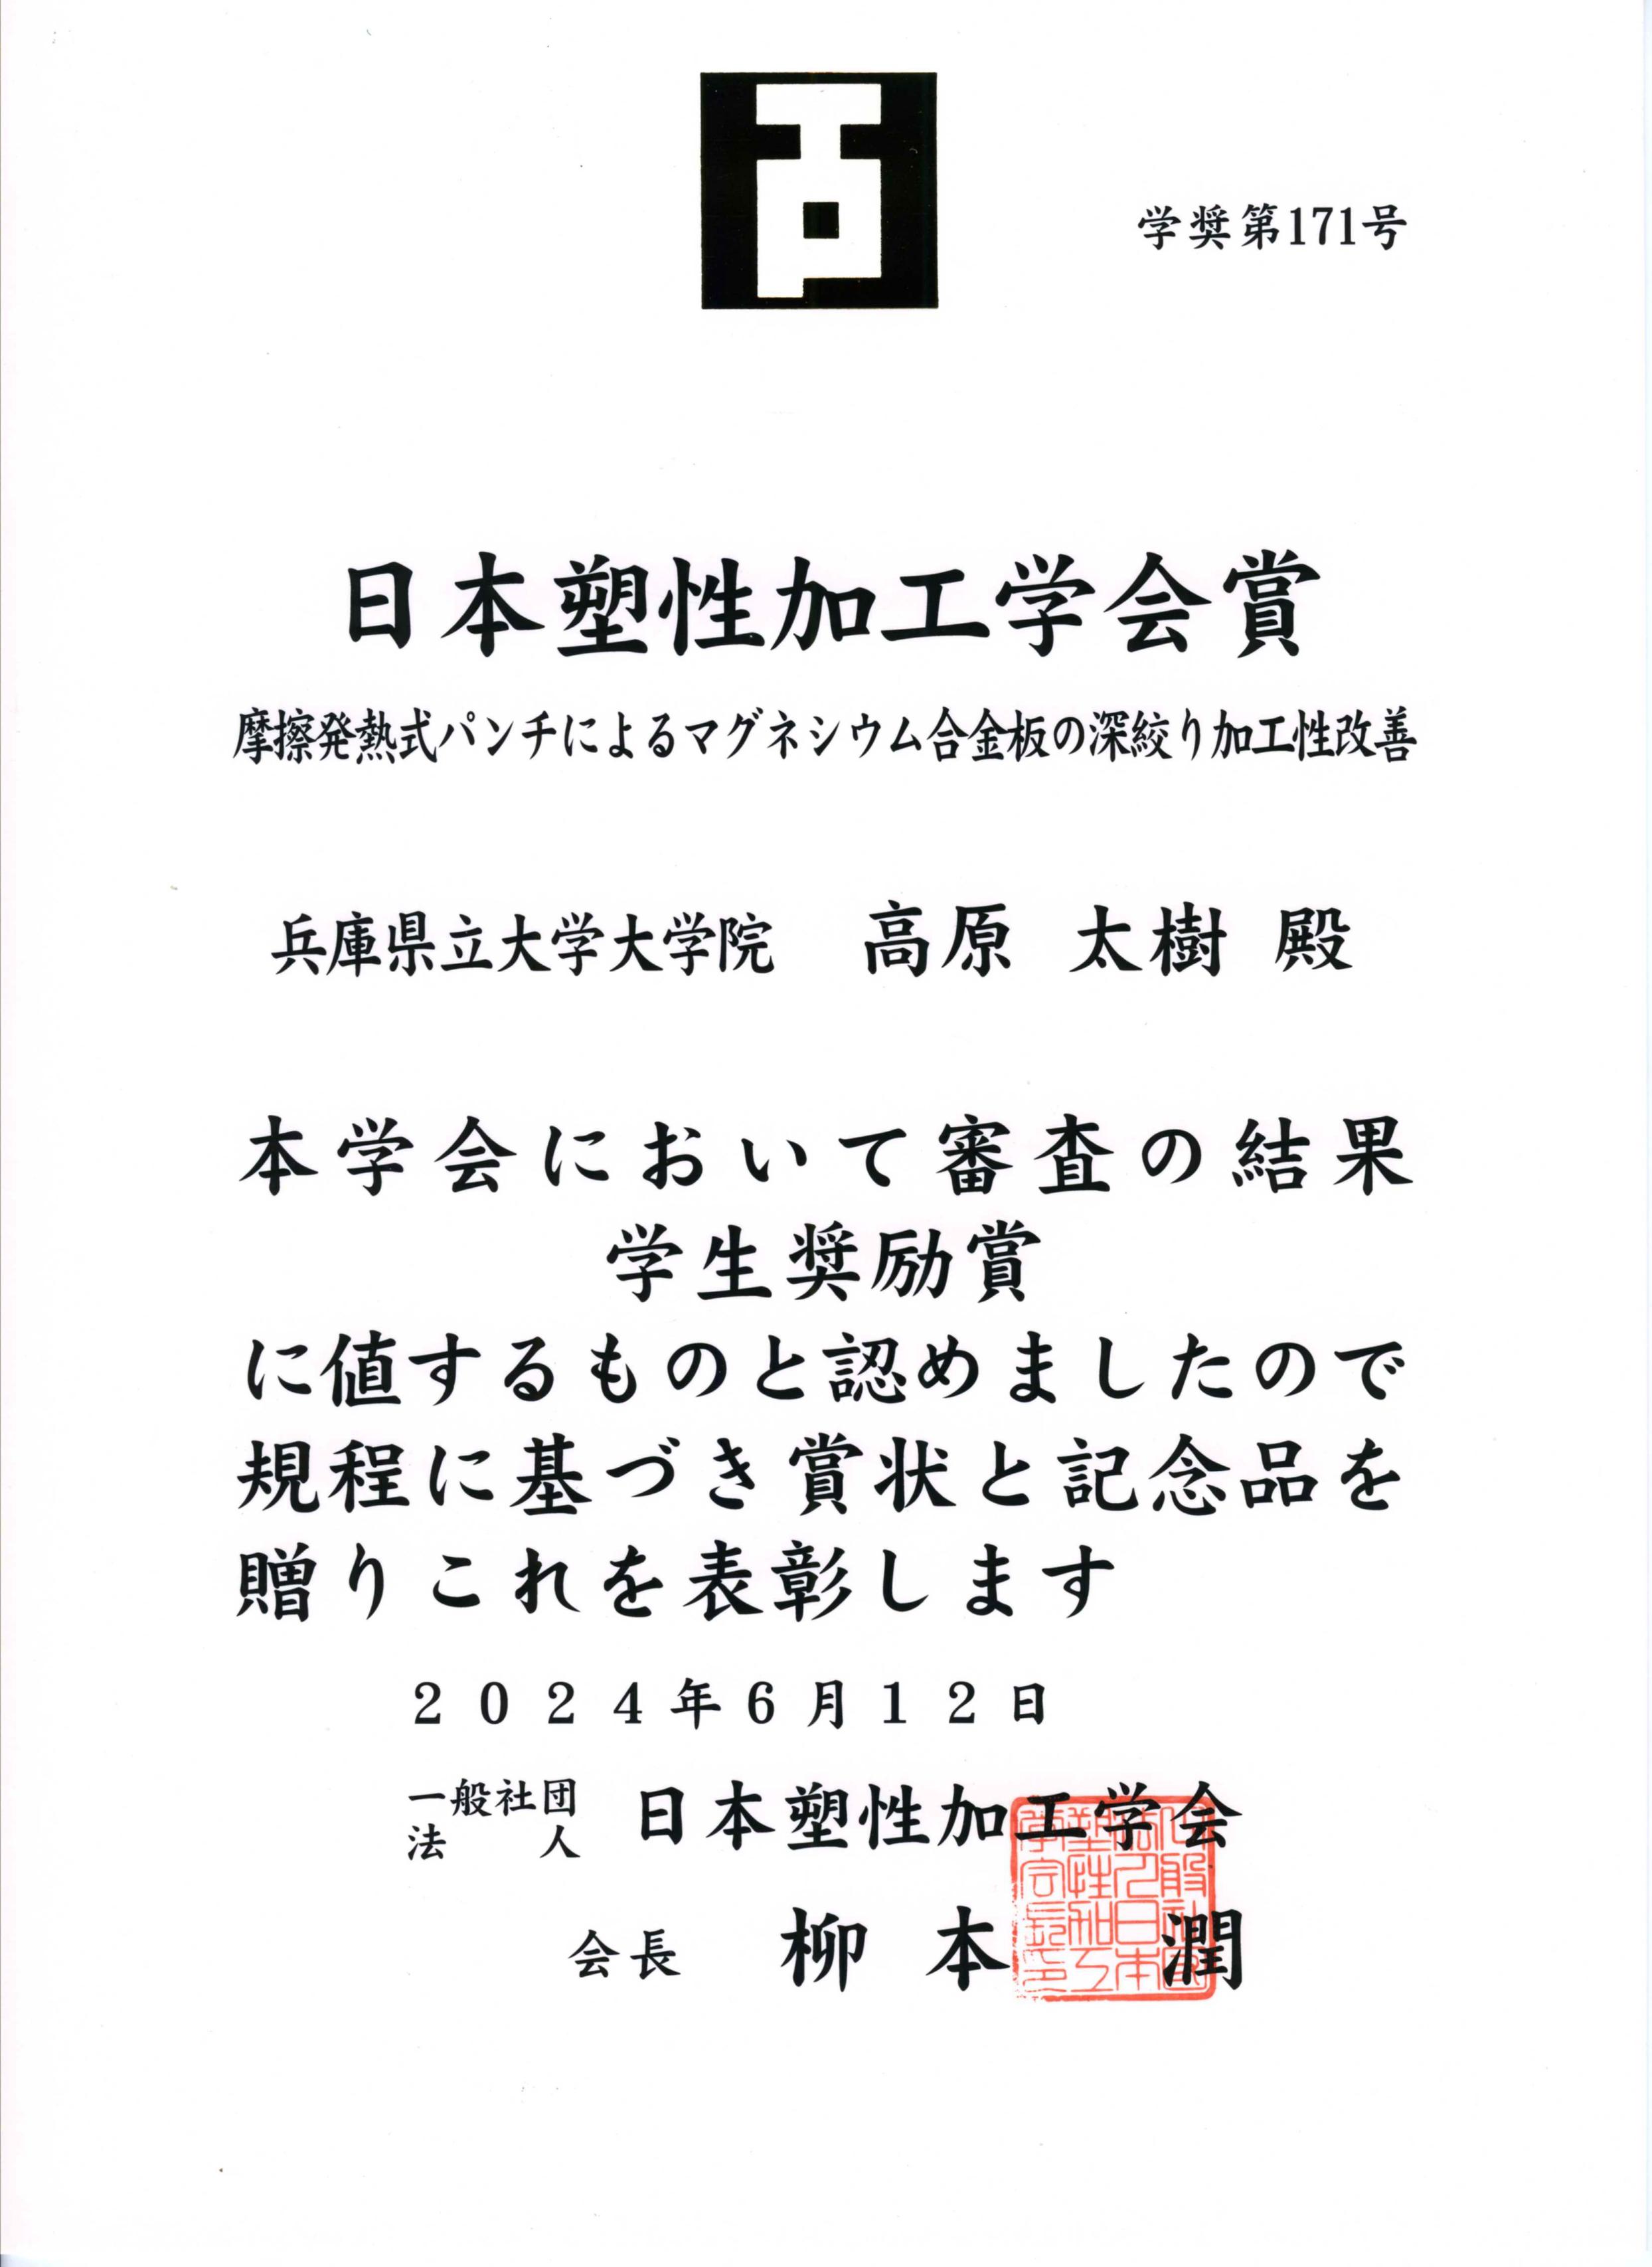 学奨第171号
日本塑性加工学会賞
摩擦発熱式パンチによるマグネシウム合金板の深絞り加工性改善
兵庫県立大学大学院 高原 太樹 殿
本学会において審査の結果
学生奨励賞
に値するものと認めましたので
規程に基づき賞状と記念品を
贈りこれを表彰します
2024年6月12日
一般社団
法人
日本塑性加工学会
会長 柳本 潤
一般社団法人日本塑性加工学会長印